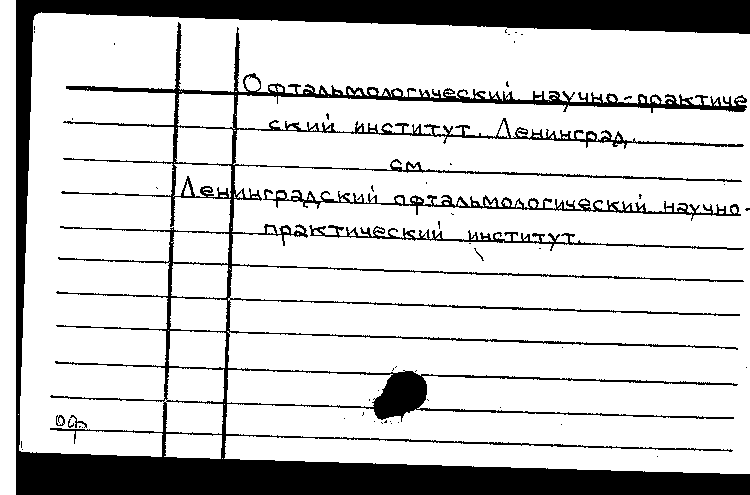 Офтальмологический научно-практиче
ский институт. Ленинград.
см.
Ленинградский офтальмологический научно-
практический институт.
оф